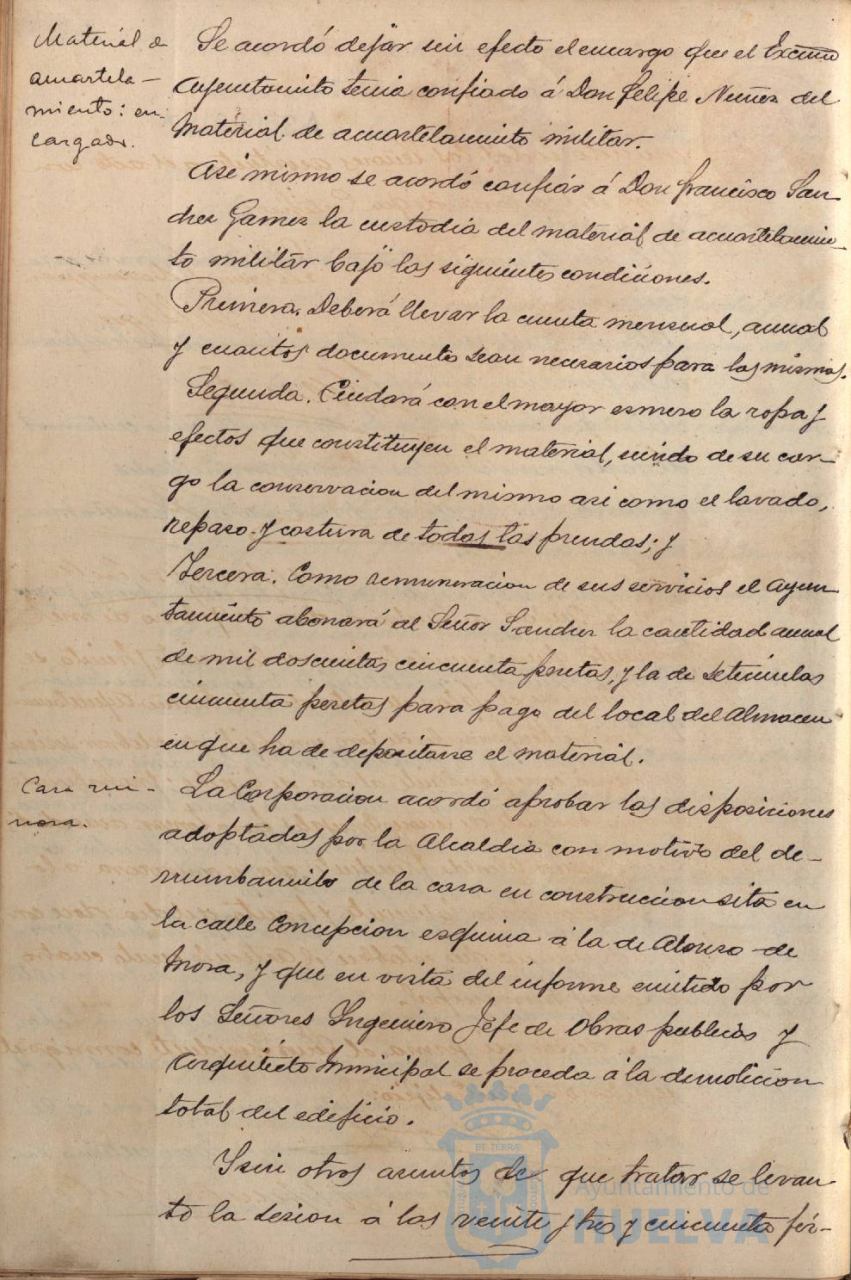 Material de
acuartela-
miento: en-
cargado.
Se acordó dejar sin efecto el encargo que el Excmo
Ayuntamiento tenia confiado á Don Felipe Nuñez del
material de acuartelamiento militar.
Asi mismo se acordó confiar á Don Francisco San-
chez Gamez la custodia del material de acuartelamien-
to militar bajo las siguientes condiciones.
Primera. Deberá llevar la cuenta mensual, anual
y cuantos documentos sean necesarios para las mismas.
Segunda. Cuidará con el mayor esmero la ropa y
efectos que constituyen el material, siendo de su car-
go la conservacion del mismo asi como el lavado,
repaso y costura de todas las prendas; y
Tercera. Como remuneracion de sus servicios el Ayun-
tamiento abonará al Señor Sanchez la cantidad anual
de mil doscientas cincuenta pesetas, y la de setecientas
cincuenta pesetas para pago del local del Almacen
en que ha de depositarse el material.
Casa rui-
nosa.
La Corporacion acordó aprobar las disposiciones
adoptadas por la Alcaldia con motivo del de-
rrumbamiento de la casa en construccion sita en
la calle Concepcion esquina á la de Alonso de
Mora, y que en vista del informe emitido por
los Señores Ingeniero Jefe de Obras publicas y
Arquitecto Municipal se proceda á la demolicion
total del edificio.
Y sin otros asuntos de que tratar se levan-
to la sesion á las veinte y tres y cincuenta, fir-
Ayuntamiento de
HUELVA